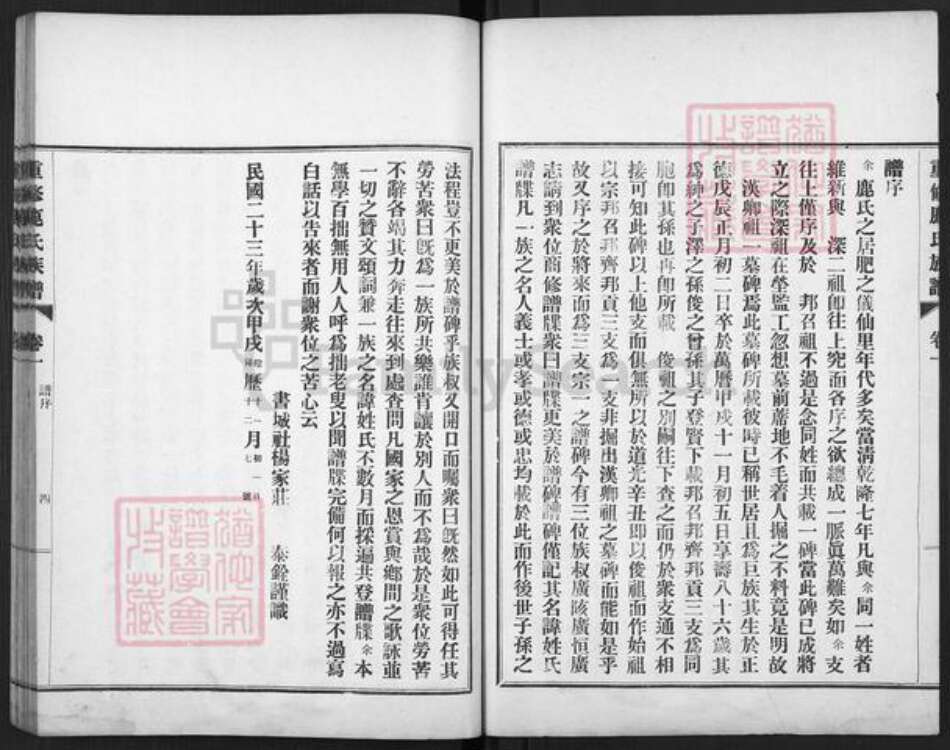 譜序
余鹿氏之居肥之儀仙里年代多矣當清乾隆七年凡與余同一姓者
維新與 深二祖卽往上究面各序之欲總成一脈眞萬難矣如余支
往上僅序及於 邦召祖不過是念同姓而共載一碑當此碑已成將
立之際深祖在塋監工忽想墓前蓆地不毛着人掘之不料竟是明故
漢卿祖一墓碑焉此墓碑所載彼時已稱世居且爲巨族其生於正
德戊辰正月初二日卒於萬曆甲戌十一月初五日享壽八十六歲其
爲紳之子澤之孫俊之曾孫其子登賢下載邦召邦齊邦貢三支爲同
胞卽其孫也再卽所載 俊祖之別嗣往下查之而仍於衆支通不相
接可知此碑以上他支面俱無所以於道光辛丑卽以俊祖面作始祖
以宗邦召邦齊邦貢三支爲一支非掘出漢卿祖之墓碑而能如是乎
故又序之於將來面爲三支宗一之譜碑今有三位族叔廣陔廣恒廣
志請到衆位商修譜牒衆曰譜牒更美於譜碑譜碑僅記其名諱姓氏
譜牒凡一族之名人義士或孝或德或忠均載於此而作後世子孫之
重修鹿氏族譜 卷一
法程豈不更美於譜碑乎族叔又開口而囑衆曰旣然如此可得任其
勞苦衆曰旣爲一族所共樂誰肯讓於別人而不爲哉於是衆位勞苦
不辭各竭其力奔走往來到處查問凡國家之恩賞與鄉間之歌誄並
一切之贊文頌詞兼一族之名諱姓氏不數月而採遍共登譜牒余本
無學百拙無用人人呼爲拙老叟以聞譜牒完備何以報之亦不過寫
白話以告來者而謝衆位之苦心云
書城社楊家莊 泰銓謹識
民國二十三年歲次甲戌陰陽曆十一十二月初一七日號
重修鹿氏族譜 卷一 譜序 四